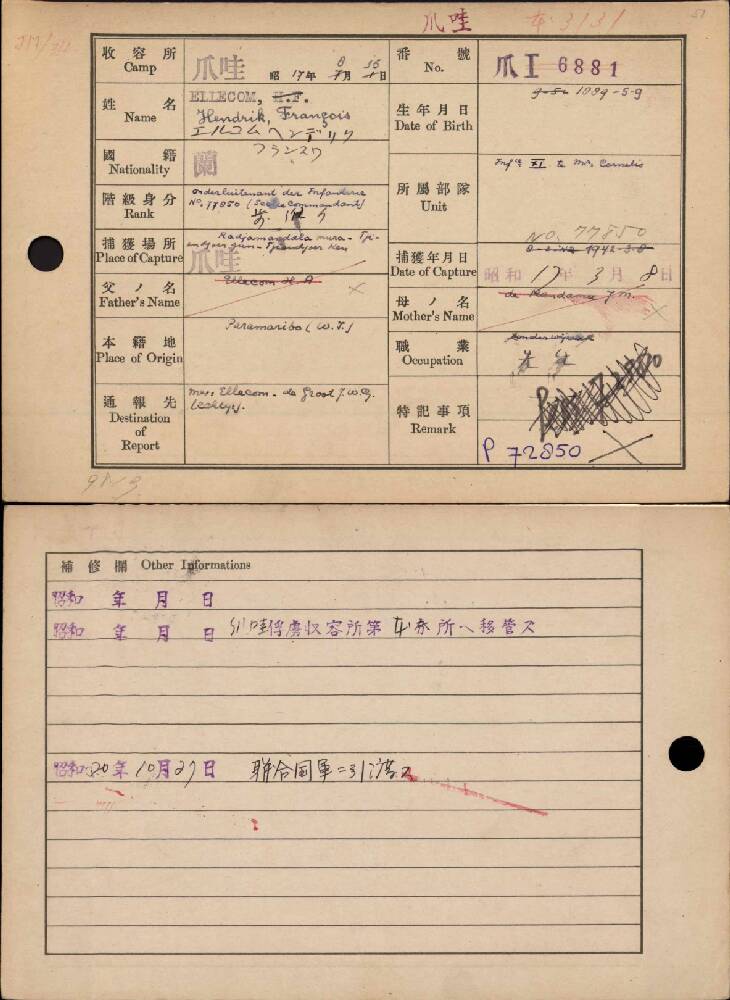 爪哇
本 3131
51
收容所
Camp
爪哇
昭 17年 8月 15日
番號
No.
爪I 6881
姓名
Name
ELLECOM, H.F.
Hendrik, François
エルコム ヘンデリック
フランスワ
生年月日
Date of Birth
1889-5-9
國籍
Nationality
蘭
所屬部隊
Unit
Infie XI
Cornelis
No. 77850
階級身分
Rank
Onderluitenant der Infanterie
No. 77850 (Sectie Commandant)
捕獲場所
Place of Capture
Radjamandala
爪哇
捕獲年月日
Date of Capture
1942-3-8
昭和 17年 3月 8日
父ノ名
Father's Name
Ellecom H. A
母ノ名
Mother's Name
本籍地
Place of Origin
Paramaribo (W. I.)
職業
Occupation
通報先
Destination
of
Report
Mev. Ellecom - de Groot J. W. G.
(echtg.)
特記事項
Remark
P 72850
補修欄 Other Informations
昭和 年 月 日
昭和 年 月 日 爪哇俘虜収容所第本分所ヘ移管ス
昭和20年10月27日 聯合国軍ニ引渡ス